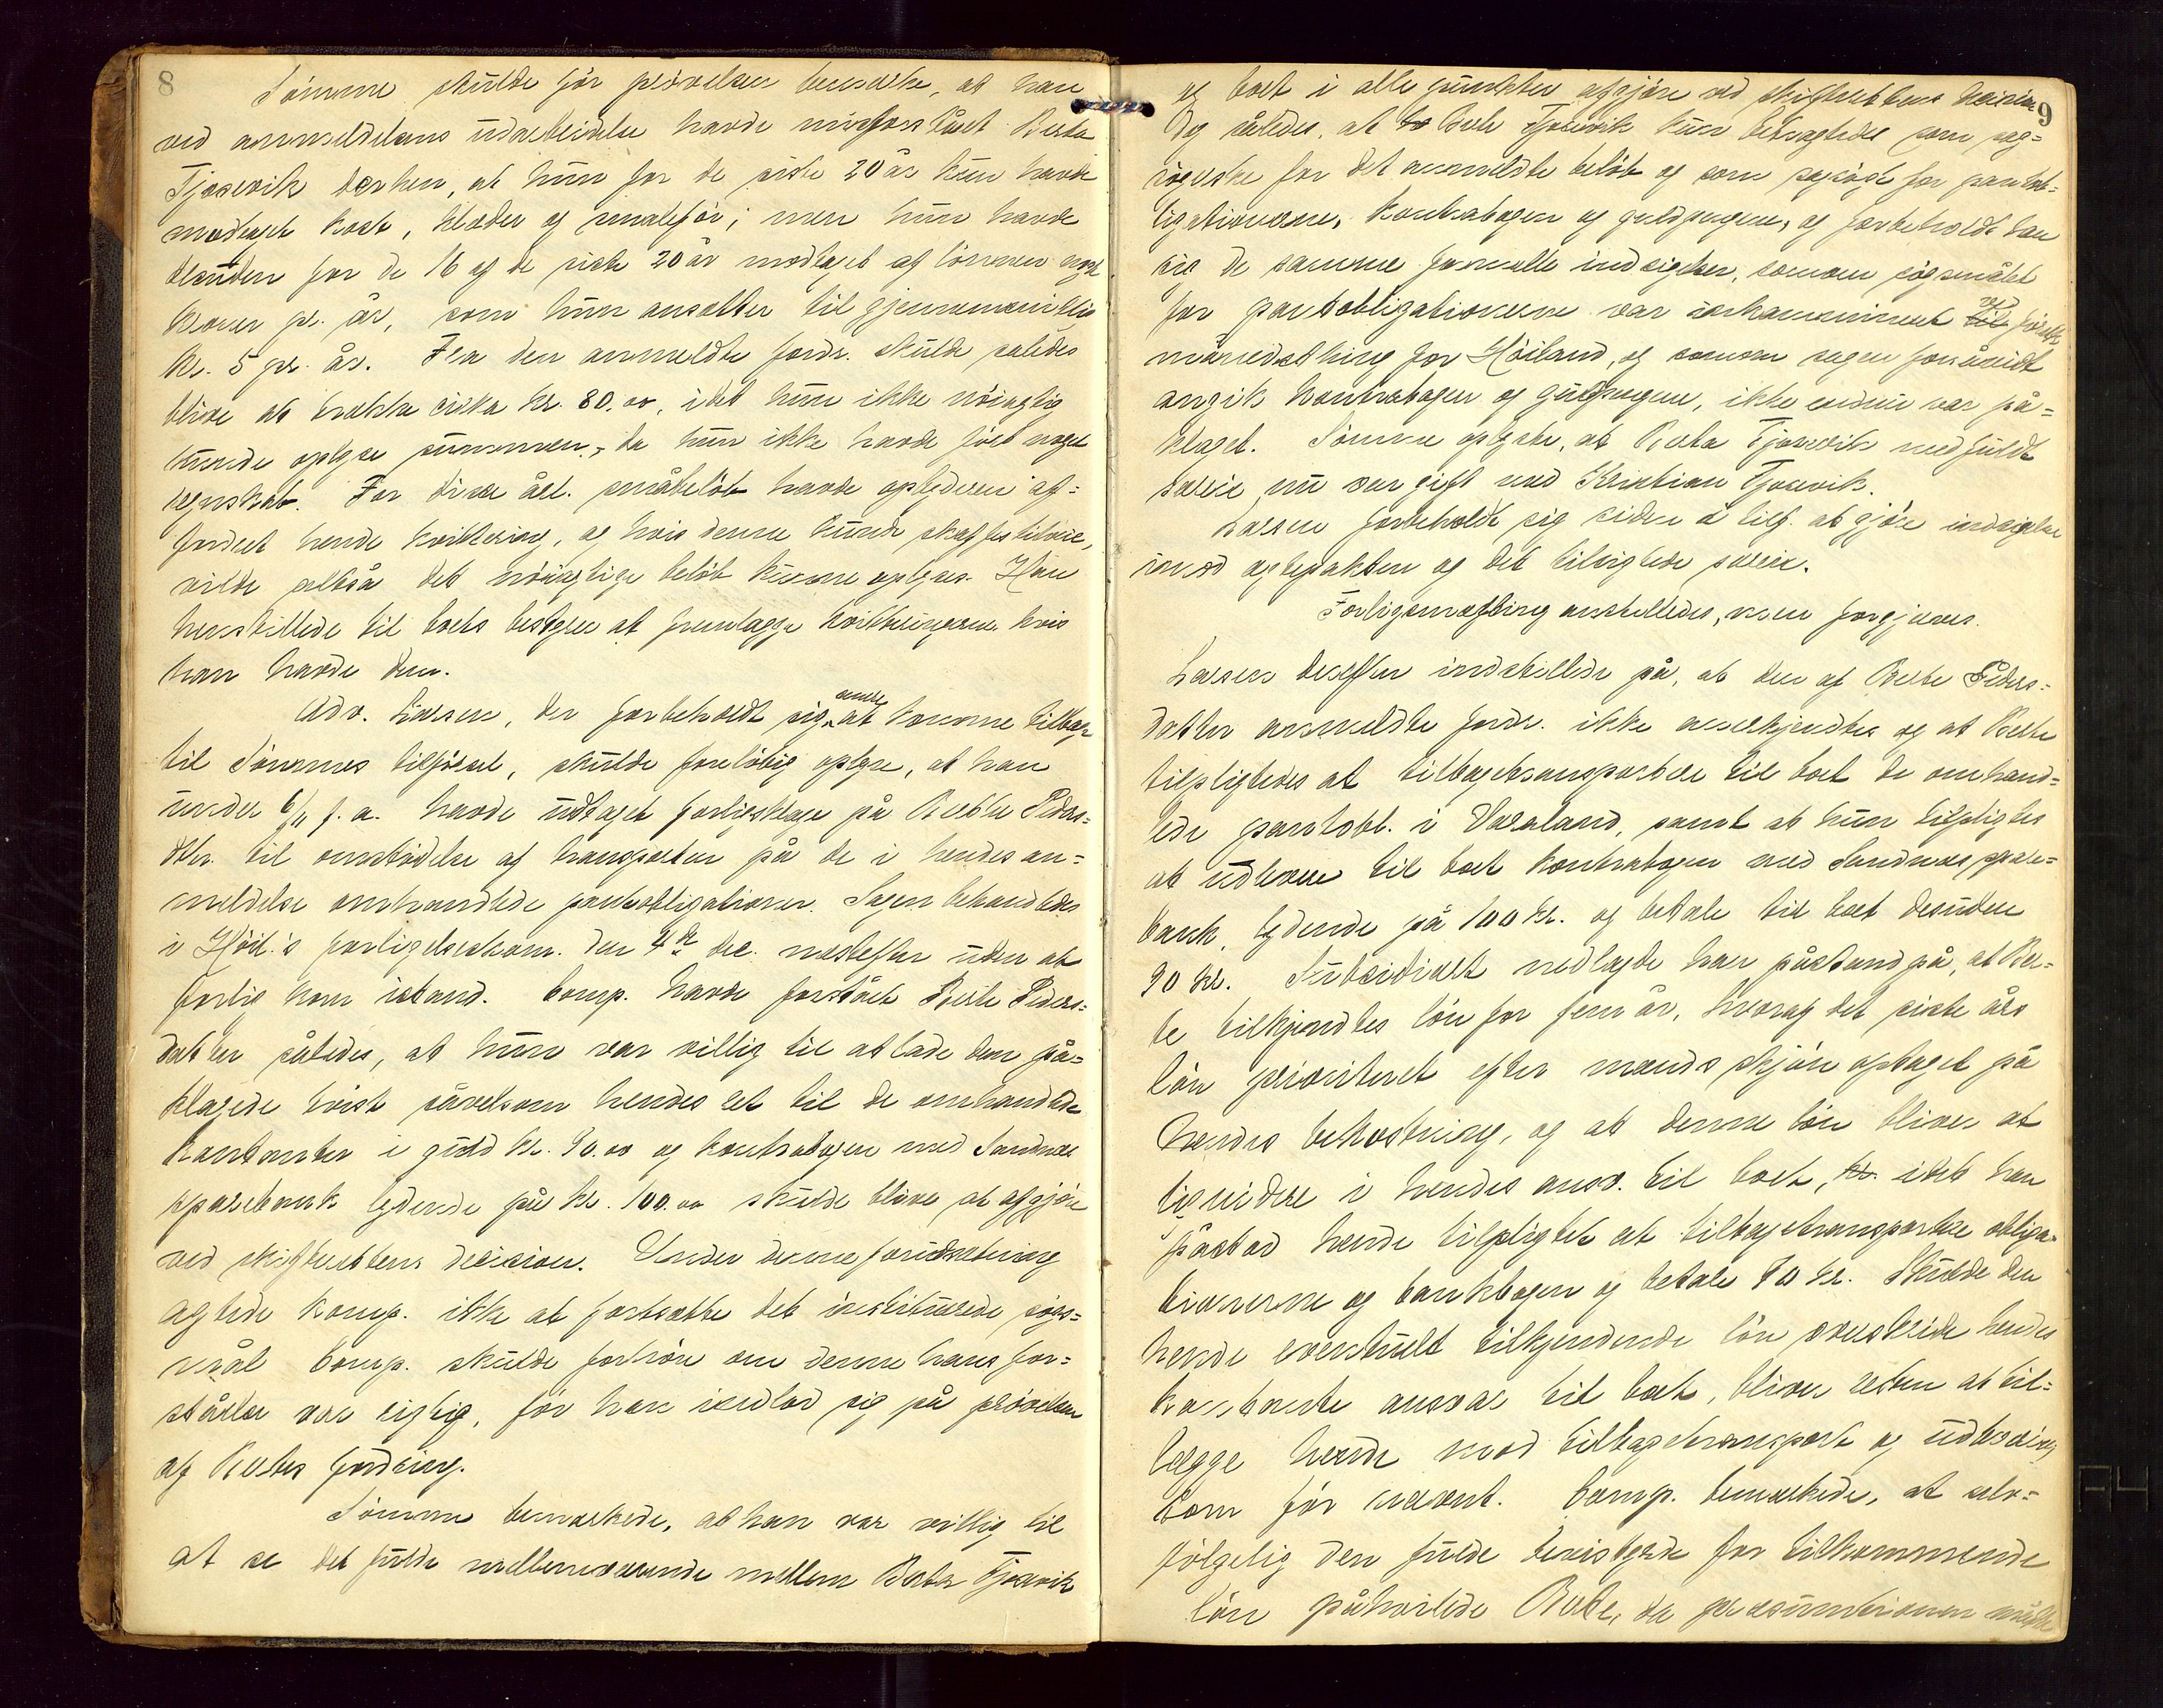 8
Sømme skulde før prøvelsen bemærke, at han
ved anmeldelsens udarbeidelse havde misforstået Berte
Tjosevik derhen, at hun for de siste 20 år kun havde
modtaget kost, klæder og småleför; men hun havde
desuden for de 16 af de siste 20 år modtaget af lönnen nogle
kroner pr. år, som hun ansatter til gjennemsnitlig
kr. 5 pr. år. Fra den anmeldte fordr. skulde således
blive at trække cirka kr. 80.00, idet hun ikke nöiagtig
kunde oplyse summen, da hun ikke havde fört noget
regnskab. For disse årl. småbelöb havde oplyderen af-
fordret hende kvittering, og hvis denne kunde skaffes tilveie,
vilde altså det nöiagtige belöb kunne oplyses. Han
henstillede til boets bestyrer at fremlægge kvitteringerne hvis
han havde dem.
Adv. Larsen, der forbeholdt sig at komme tilbage
til Sømmes tilförsel, skulde foreløbig oplyse, at han
under 6/11 f. a. havde udtaget forligsklage på Berthe Peders-
dtr. til omstödelse af transporten på de i hendes an-
meldelse omhandlede pantobligationer. Sagen behandledes
i Höil.'s forligelseskom. den 4de dec. næstefter uden at
forlig kom istand. Comp. havde forstået Berte Peders-
datter således, at hun var villig til at lade den på-
klagede tvist såvelsom hendes ret til de omhandlede
kontanter i guld kr. 90.00 og kontrabogen med Sandnes
sparebank lydende på kr. 100.00 skulde blive at afgjöre
ved skifterettens decision. Under denne forudsætning
agtede komp. ikke at fortsætte det instituerede søgs-
mål. Comp. skulde forhöre om denne hans for-
ståelse var rigtig, för han indlod sig på prövelsen
af Bertes fordring.
Sömme bemærkede, at han var villig til
at se det fulde mellemværende mellem Berte Tjosevik
9
og boet i alle punkter afgjöre ved skifterettens decision
Dog således, at Berte Tjosevik kun betragtedes som sag-
sögerske for det anmeldte belöb og som sagsögt for pantob-
ligationerne, kontrabogen og guldpengene, og forbeholdt han
sig de samme formelle indsigelser, somom sögsmålet
for pantobligationerne var inkamineret ved
månedsthing for Höiland, og somom sagen forsåvidt
angik kontrabogen og guldpengene, ikke endnu var på-
klaget. Sömme oplyste, at Berta Tjosevik medfuldt
særeie nu var gift med Kristian Tjosevik.
Larsen forbeholdt sig siden i tilf. at gjöre indsigelse
imod ægtepakten og det tilsigtede særeie.
Forligsmægling anstilledes, men forgjæves.
Larsen derefter indstillede på, at den af Berte Peders-
datter anmeldte fordr. ikke anerkjendtes og at Berte
tilpligtedes at tilbagetransportere til boet de omhand-
lede pantobl. i Varaland, samt at hun tilpligtes
at udlevere til boet kontrabogen med Sandnes spare-
bank, lydende på 100 kr. og betale til boet desuden
90 kr. Subsidiært nedlagde han påstand på, at Ber-
te tilkjendtes lön for fem år, hvoraf det siste års
lön prioriteret efter mænds skjön optaget på
hendes bekostning, og at denne lön bliver at
liquidere i hendes ansv. til boet, idet han
påstod hende tilpligtet at tilbagetransportere obliga-
tionerne og bankbogen og betale 90 kr. Skulde den
hende eventuelt tilkjendende lön overskride hendes
konstaterte ansvar til boet, bliver retten at til-
lægge hende mod tilbagetransport og udbetaling
som för nævnt. Comp. bemærkede, at selv-
følgelig den fulde bevisbyrde for tilkommende
lön påhvilede Berte, da præsumtionen måtte